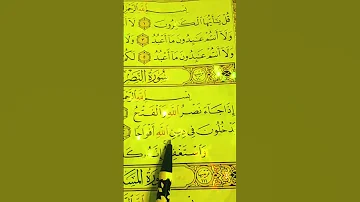 بسم الله
قُلْ يَٰٓأَيُّهَا ٱلْكَٰفِرُونَ ۝ لَآ
وَلَآ أَنتُمْ عَٰبِدُونَ مَآ أَعْبُدُ ۝
وَلَآ أَنتُمْ عَٰبِدُونَ مَآ أَعْبُدُ ۝ لَكُمْ
سُورَةُ النَّصْرِ
بسم
إِذَا جَآءَ نَصْرُ ٱللَّهِ وَٱلْفَتْحُ
يَدْخُلُونَ فِى دِينِ ٱللَّهِ أَفْوَاجًا
وَٱسْتَغْفِرْهُ
سُورَةُ